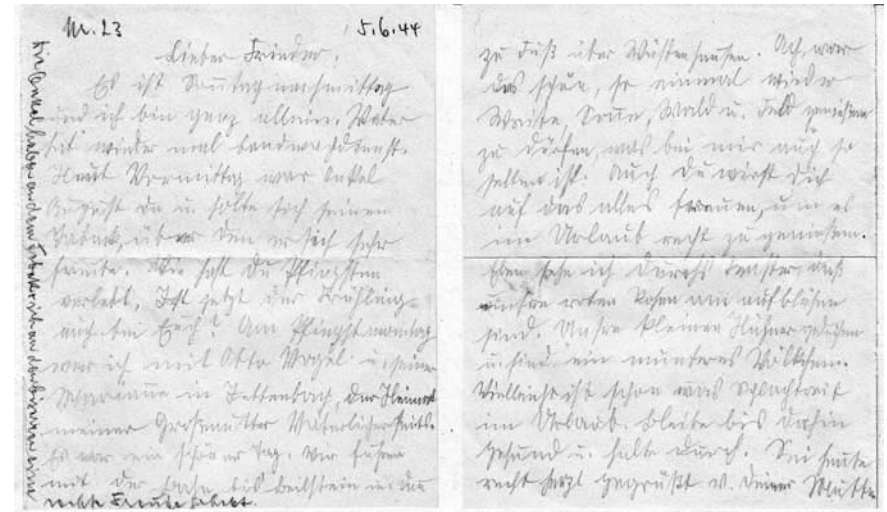 Nr. 23 5.6.44
Lieber Frieder!
Es ist Sonntag nachmittag
und ich bin ganz allein. Vater
hat wieder mal Landwachdienst.
Heut Vormittag war Onkel
August da u. holte sich seinen
Tabak, über den er sich sehr
freute. Wie hast Du Pfingsten
verlebt, Ist jetzt der Frühling
auch bei Euch? Am Pfingstmontag
war ich mit Otto Vogel u. seiner
Marianne in Jettenbach, der Heimat
meiner Grosmutter Väterlicherseits.
Es war ein schöner Tag. Wir fuhren
mit der Bahn bis Beilstein u. dann
zu Fuß über Wüstenhausen. Ach, war
das schön, so einmal wieder
Weite, Sonne, Wald u. Feld geniesen
zu dürfen, was bei mir auch so
selten ist. Auch Du wirst Dich
auf das alles freuen, um es
im Urlaub recht zu geniesen.
Eben sehe ich durchs Fenster, daß
unsre roten Rosen am aufblühen
sind. Unsre kleinen Hühner gedeihen
u. sind ein munteres Völkchen.
Vielleicht ist schon was schlachtreif
im Urlaub. Bleibe bis dahin
gesund u. halte durch. Sei heute
recht herzl gegrüßt v. Deiner Mutter
Die Onkel haben an dem Tabak
rechte Freude gehabt.